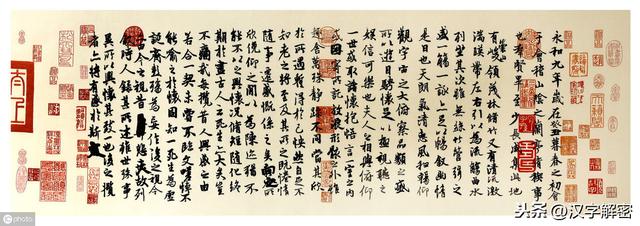 永和九年歲在癸丑暮春之初會
于會稽山陰之蘭亭脩稧事
也羣賢畢至少長咸集此地
有崇山峻領茂林脩竹又有清流激
湍暎帶左右引以為流觴曲水
列坐其次雖無絲竹管弦之
盛一觴一詠亦足以暢敘幽情
是日也天朗氣清惠風和暢仰
觀宇宙之大俯察品類之盛
所以遊目騁懷足以極視聽之
娛信可樂也夫人之相與俯仰
一世或取諸懷抱悟言一室之內
或因寄所託放浪形骸之外雖
趣舍萬殊靜躁不同當其欣
於所遇蹔得於己快然自足不
知老之將至及其所之既惓情
隨事遷感慨係之矣向之所
欣俛仰之閒以為陳迹猶不
能不以之興懷況脩短隨化終
期於盡古人云死生亦大矣豈
不痛哉每攬昔人興感之由
若合一契未嘗不臨文嗟悼不
能喻之於懷固知一死生為虛
誕齊彭殤為妄作後之視今
亦由今之視昔悲夫故列
敘時人錄其所述雖世殊事
異所以興懷其致一也後之攬
者亦將有感於斯文
photo
头条@汉字解密